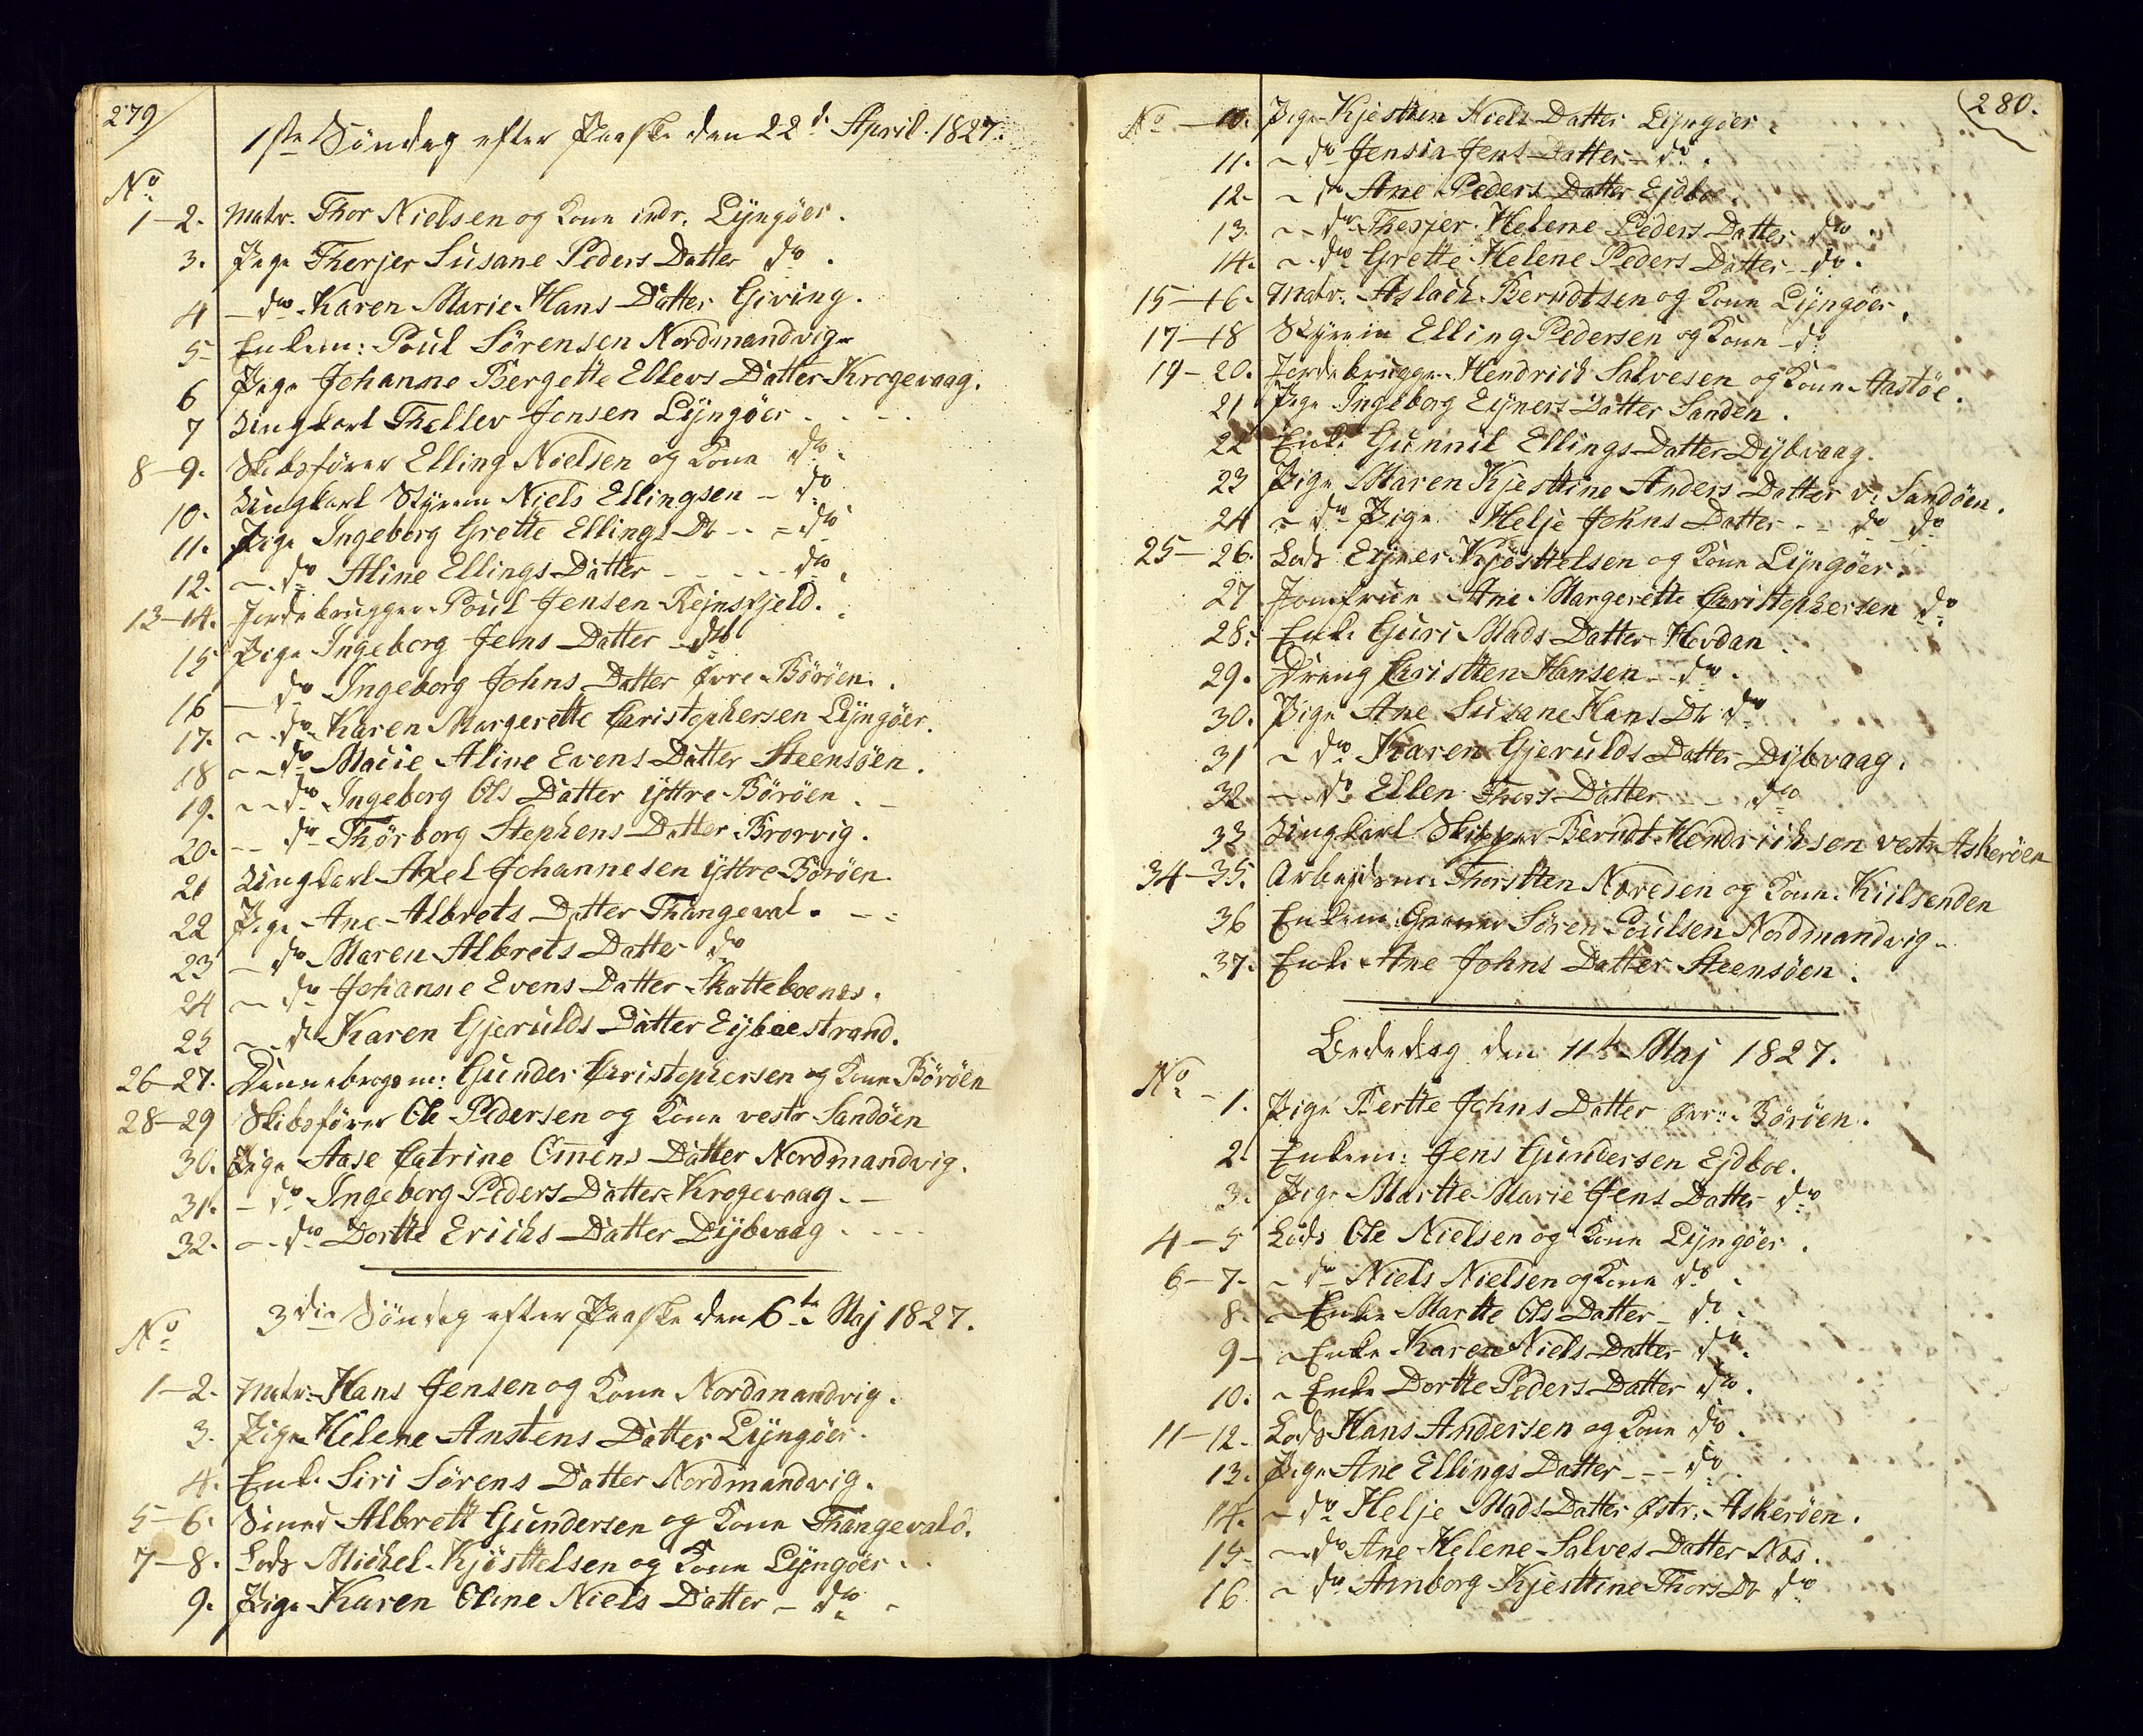 279
1ste Söndag efter Paaske den 22d April 1827.
No
1-2. Matr. Thor Nielsen og Kone indr. Lÿngöer.
3. Pige Therjer Susane Peders Datter do.
4 - do Karen Marie Hans Datter Giving.
5 Enkem: Poul Sörensen Nordmandvig
6 Pige Johanne Bergette Ellevs Datter Krogevaag.
7 Ungkarl Thellev Jensen Lÿngöer
8-9. Skibsförer Elling Nielsen og Kone do.
10. Ungkarl Stÿrm Niels Ellingsen - do
11. Pige Ingeborg Grette Ellings Dr - do
12. - do Aline Ellings Datter - do.
13-14. Jordebrugger Poul Jensen Rejnsfjeld.
15 Pige Ingeborg Jens Datter do
16 - do Ingeborg Johns Datter övre Böröen.
17. - do Karen Margerette Christophersen Lÿngöer.
18 - do Marie Aline Evens Datter Steensöen.
19. - do Ingeborg Ols Datter ÿttre Böröen.
20. - do Thörborg Stephens Datter Brorvig.
21 Ungkarl Axel Johannesen ÿttre Böröen.
22 Pige Ane Albrets Datter Thangeval.
23 - do Maren Albrets Datter do
24 - do Johanne Evens Datter Skatteboenes.
25 - do Karen Gjerulds Datter Eÿboestrand.
26-27. Dannebrogsm: Gunder Christophersen og Kone Böröen
28-29 Skibsförer Ole Pedersen og Kone vestr Sandöen
30. Pige Aase Catrine Omens Datter Nordmandvig.
31. - do Ingeborg Peders Datter Krogevaag.
32. - do Dortte Erichs Datter Dÿbvaag
3die Söndag efter Paaske den 6te Maj 1827.
No
1-2. Matr. Hans Jensen og Kone Nordmandvig.
3. Pige Helene Anstens Datter Lÿngöer.
4. Enke Siri Sörens Datter Nordmandvig.
5-6. Smed Albrett Gundersen og Kone Thangevald.
7-8. Lods Michel Kjösttelsen og Kone Lÿngöer.
9. Pige Karen Oline Niels Datter - do
280.
No 10. Pige Kjesttien Niels Datter Lÿngöer.
11. - do Jensia Jens Datter do.
12. - do Ane Peders Datter Ejdboe.
13. - do Therjer Helene Peders Datter do.
14. - do Grette Helene Peders Datter do.
15-16. Matr. Aslach Berndtsen og Kone Lÿngöer.
17-18 Stÿrm Elling Pedersen og Kone do
19-20. Jordebrugger Hendrich Salvesen og Kone Aastöe.
21 Pige Ingeborg Eÿners Datter Sanden.
22 Enke Gunnil Ellings Datter Dÿbvaag.
23 Pige Maren Kjesttine Anders Datter v. Sandöen.
24 - do Pige Helje Johns Datter - do do
25-26. Lods Eÿner Kjösttelsen og Kone Lÿngöer.
27 Jomfrue Ane Margerette Christophersen do
28. Enke Guri Mads Datter Hovdan.
29. Dreng Christten Hansen do.
30. Pige Ane Susane Hans Dr do
31 - do Karen Gjerulds Datter Dÿbvaag.
32 - do Ellen Thors Datter do
33 Ungkarl Skipper Berndt Hendrichsen vestr Askeröen
34-35. Arbejdsm. Thorstten Næresen og Kone Kiilsenden
36 Enkem Sören Poulsen Nordmandvig
37. Enke Ane Johns Datter Steensöen.
Bededag den 11te Maj 1827.
No - 1. Pige Bertte Johns Datter övr. Böröen.
2. Enkem: Jens Gundersen Ejdboe.
3. Pige Martte Marie Jens Datter do
4-5 Lods Ole Nielsen og Kone Lÿngöer.
6-7. - do Niels Nielsen og Kone do
8. - Enke Martte Ols Datter - do.
9- - Enke Karen Niels Datter do.
10. - Enke Dortte Peders Datter do.
11-12. Lods Hans Andersen og Kone do.
13. Pige Ane Ellings Datter - - - do
14. - do Helje Mads Datter östr. Askeröen.
15- - do Ane Helene Salves Datter Næs.
16 - do Arnborg Kjesttine Thors Dr do